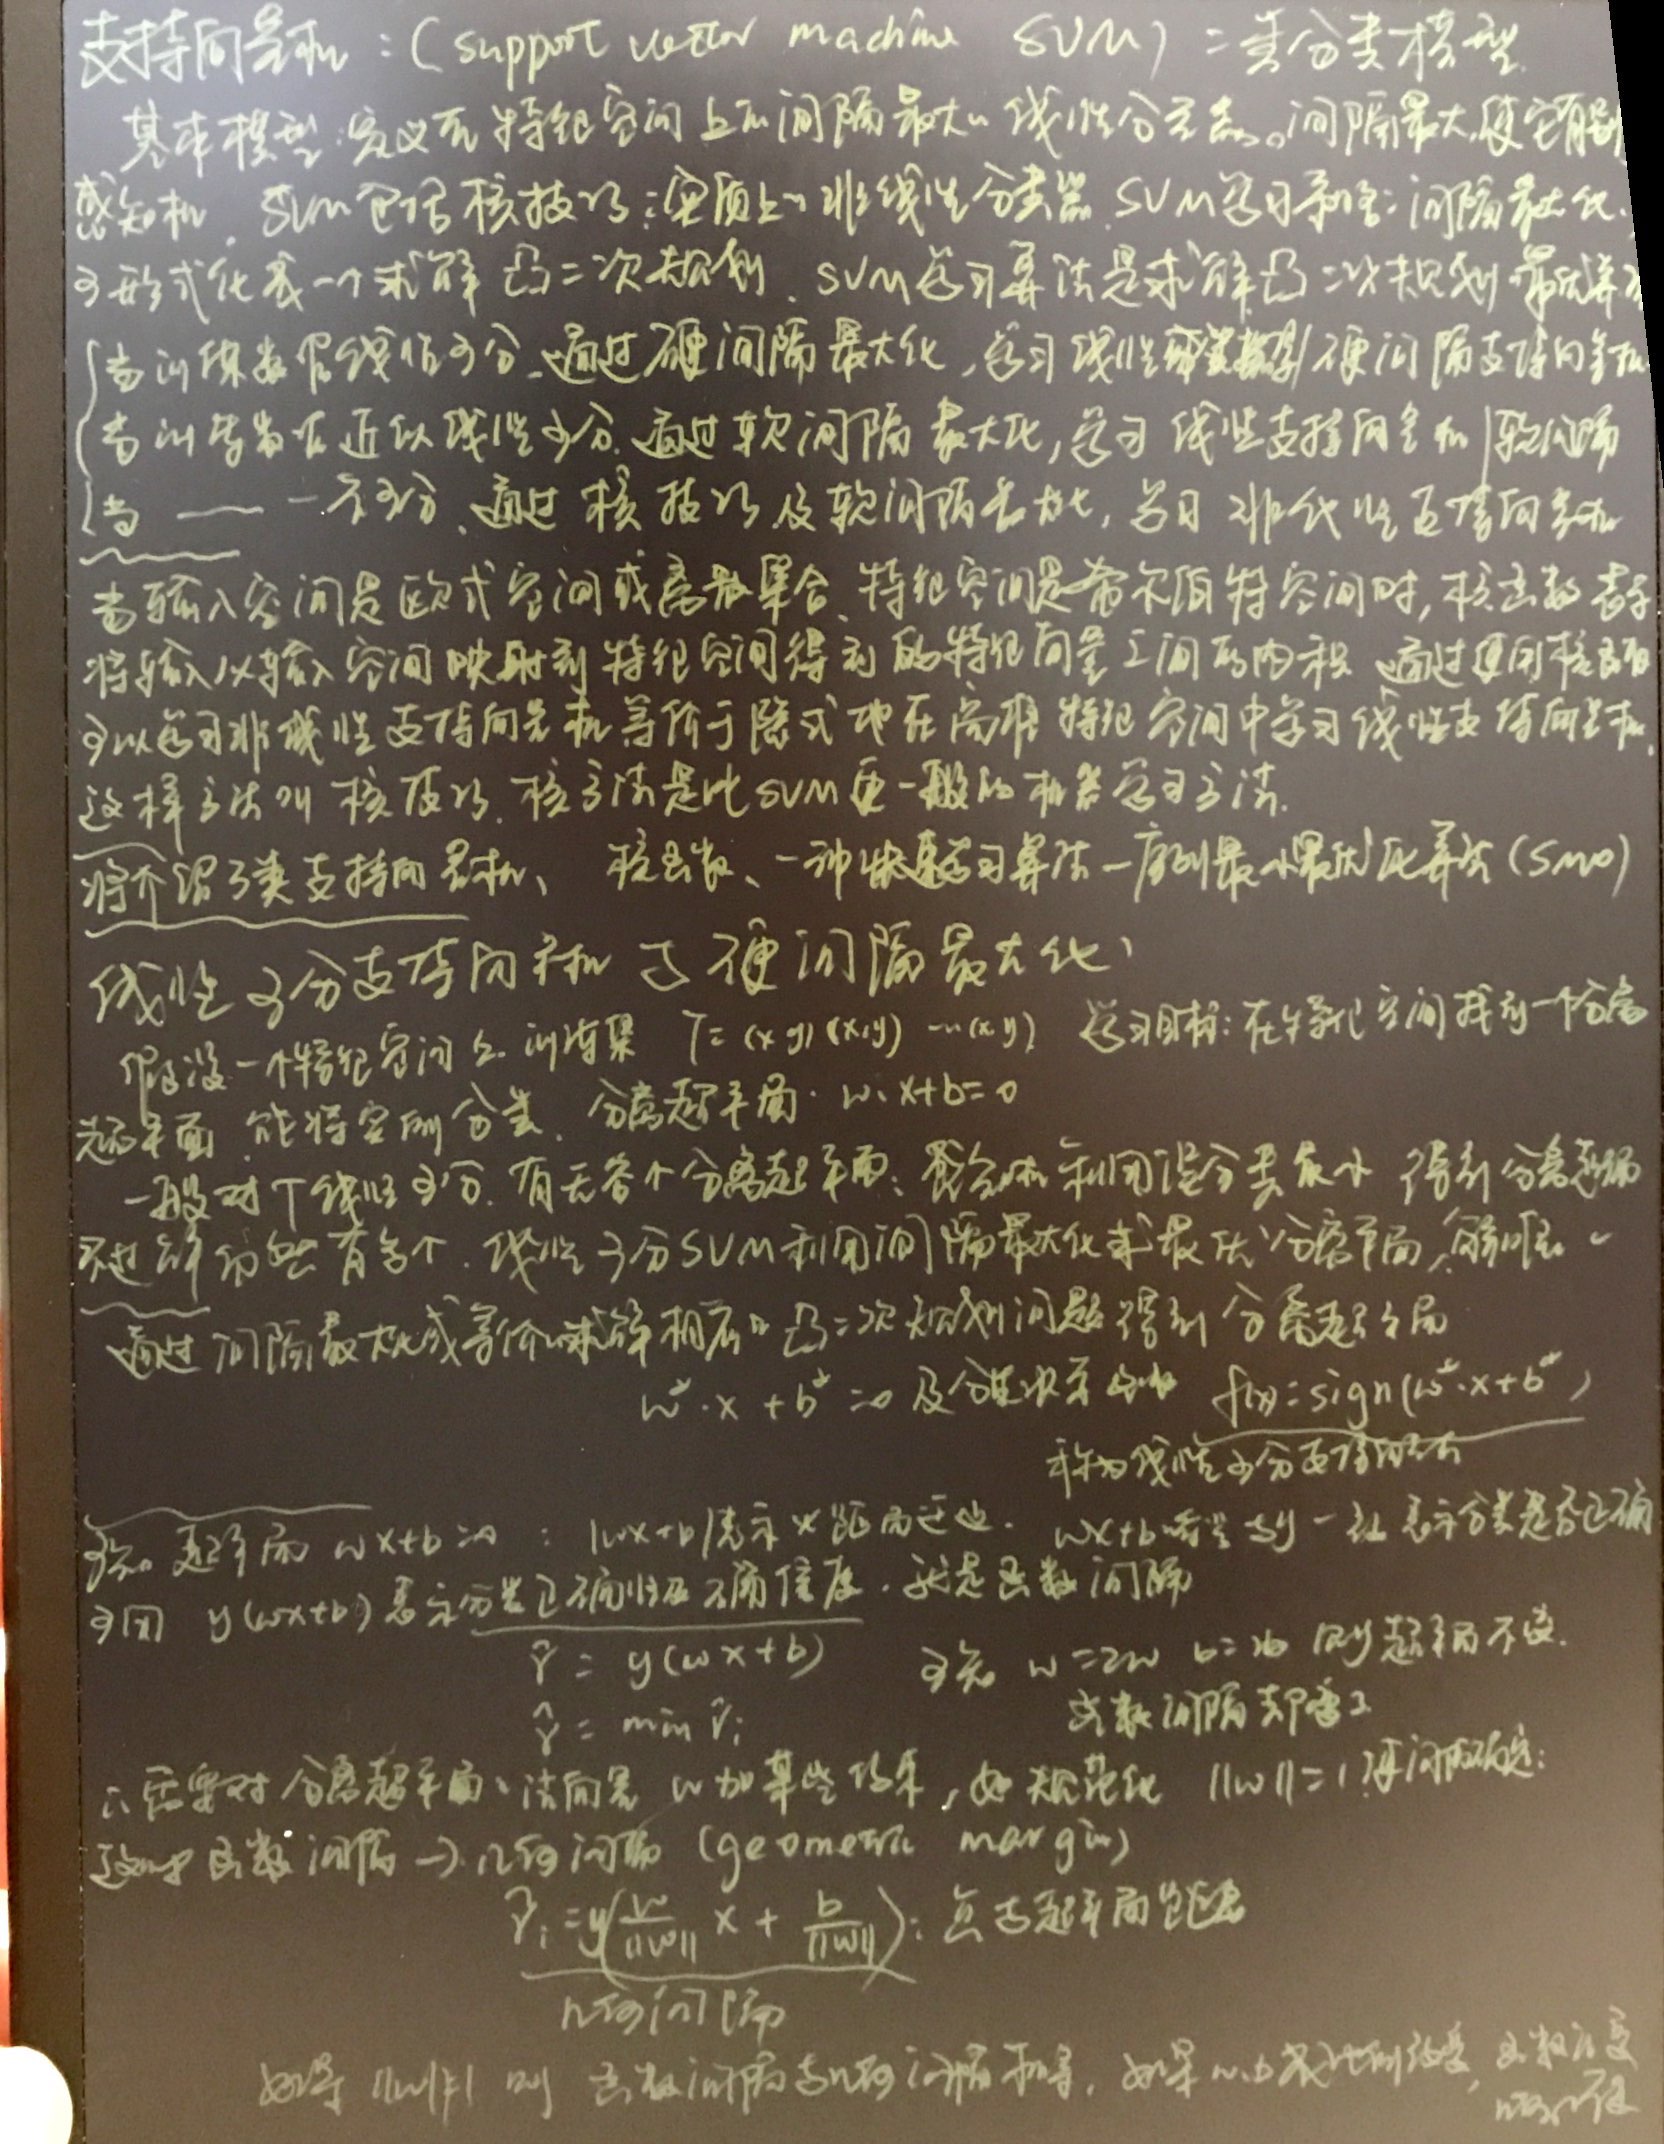 支持向量机：(support vector machine SVM) 二类分类模型.
基本模型:定义在特征空间上的间隔最大的线性分类器。间隔最大,使它有别
感知机. SVM包括核技巧:实质上的非线性分类器. SVM学习策略:间隔最大化.
可形式化为一个求解凸二次规划. SVM学习算法是求解凸二次规划最优算法
当训练数据线性可分、通过硬间隔最大化,学习线性 硬间隔支持向量机
当训练数据近似线性可分.通过软间隔最大化,学习线性支持向量机|软间隔
当 —— 一不可分、通过核技巧及软间隔最大化,学习非线性支持向量机
当输入空间是欧式空间或离散集合、特征空间是希尔伯特空间时,核函数表示
将输入从输入空间映射到特征空间得到的特征向量之间的内积 通过使用核函数
可以学习非线性支持向量机等价于隐式地在高维特征空间中学习线性支持向量机.
这样方法叫核技巧. 核方法是比SVM更一般的机器学习方法.
将介绍3类支持向量机、 核函数、一种快速学习算法—序列最小最优化算法(SMO)
线性可分支持向量机与硬间隔最大化、
假设一个特征空间上.训练集 T=(x y)(x,y) …(x,y) 学习目标:在特征空间找到一个分离
超平面,能将实例分类. 分离超平面. w·x+b=0
一般对于线性可分.有无穷个分离超平面:感知机利用误分类最小 得到分离超平面
不过解的 有多个.线性可分SVM利用间隔最大化求最优分离平面,解唯一
通过间隔最大化或等价的求解相应的凸二次规划问题得到分离超平面
w*·x+b*=0及分类决策函数 f(x)=sign(w*·x+b*)
称为线性可分支持向量机
超平面 wx+b=0 : |wx+b|表示x距离远近. wx+b符号与y一致表示分类是否正确
可用 y(wx+b)表示分类正确性及确信度.就是函数间隔
γ̂ = y(wx+b) 可知 w=2w b=2b 则超平面不变.
γ̂ = min γ̂i 函数间隔却变2
∴需要对分离超平面、法向量w加某些约束,如规范化 ||w||=1,使间隔确定:
这时函数间隔→几何间隔 (geometric margin)
γ̂i=y(w/||w|| x + b/||w||):点与超平面距离
几何间隔
如果||w||=1 则 函数间隔与几何间隔相等,如果w.b成比例改变,函数改变
几何不变